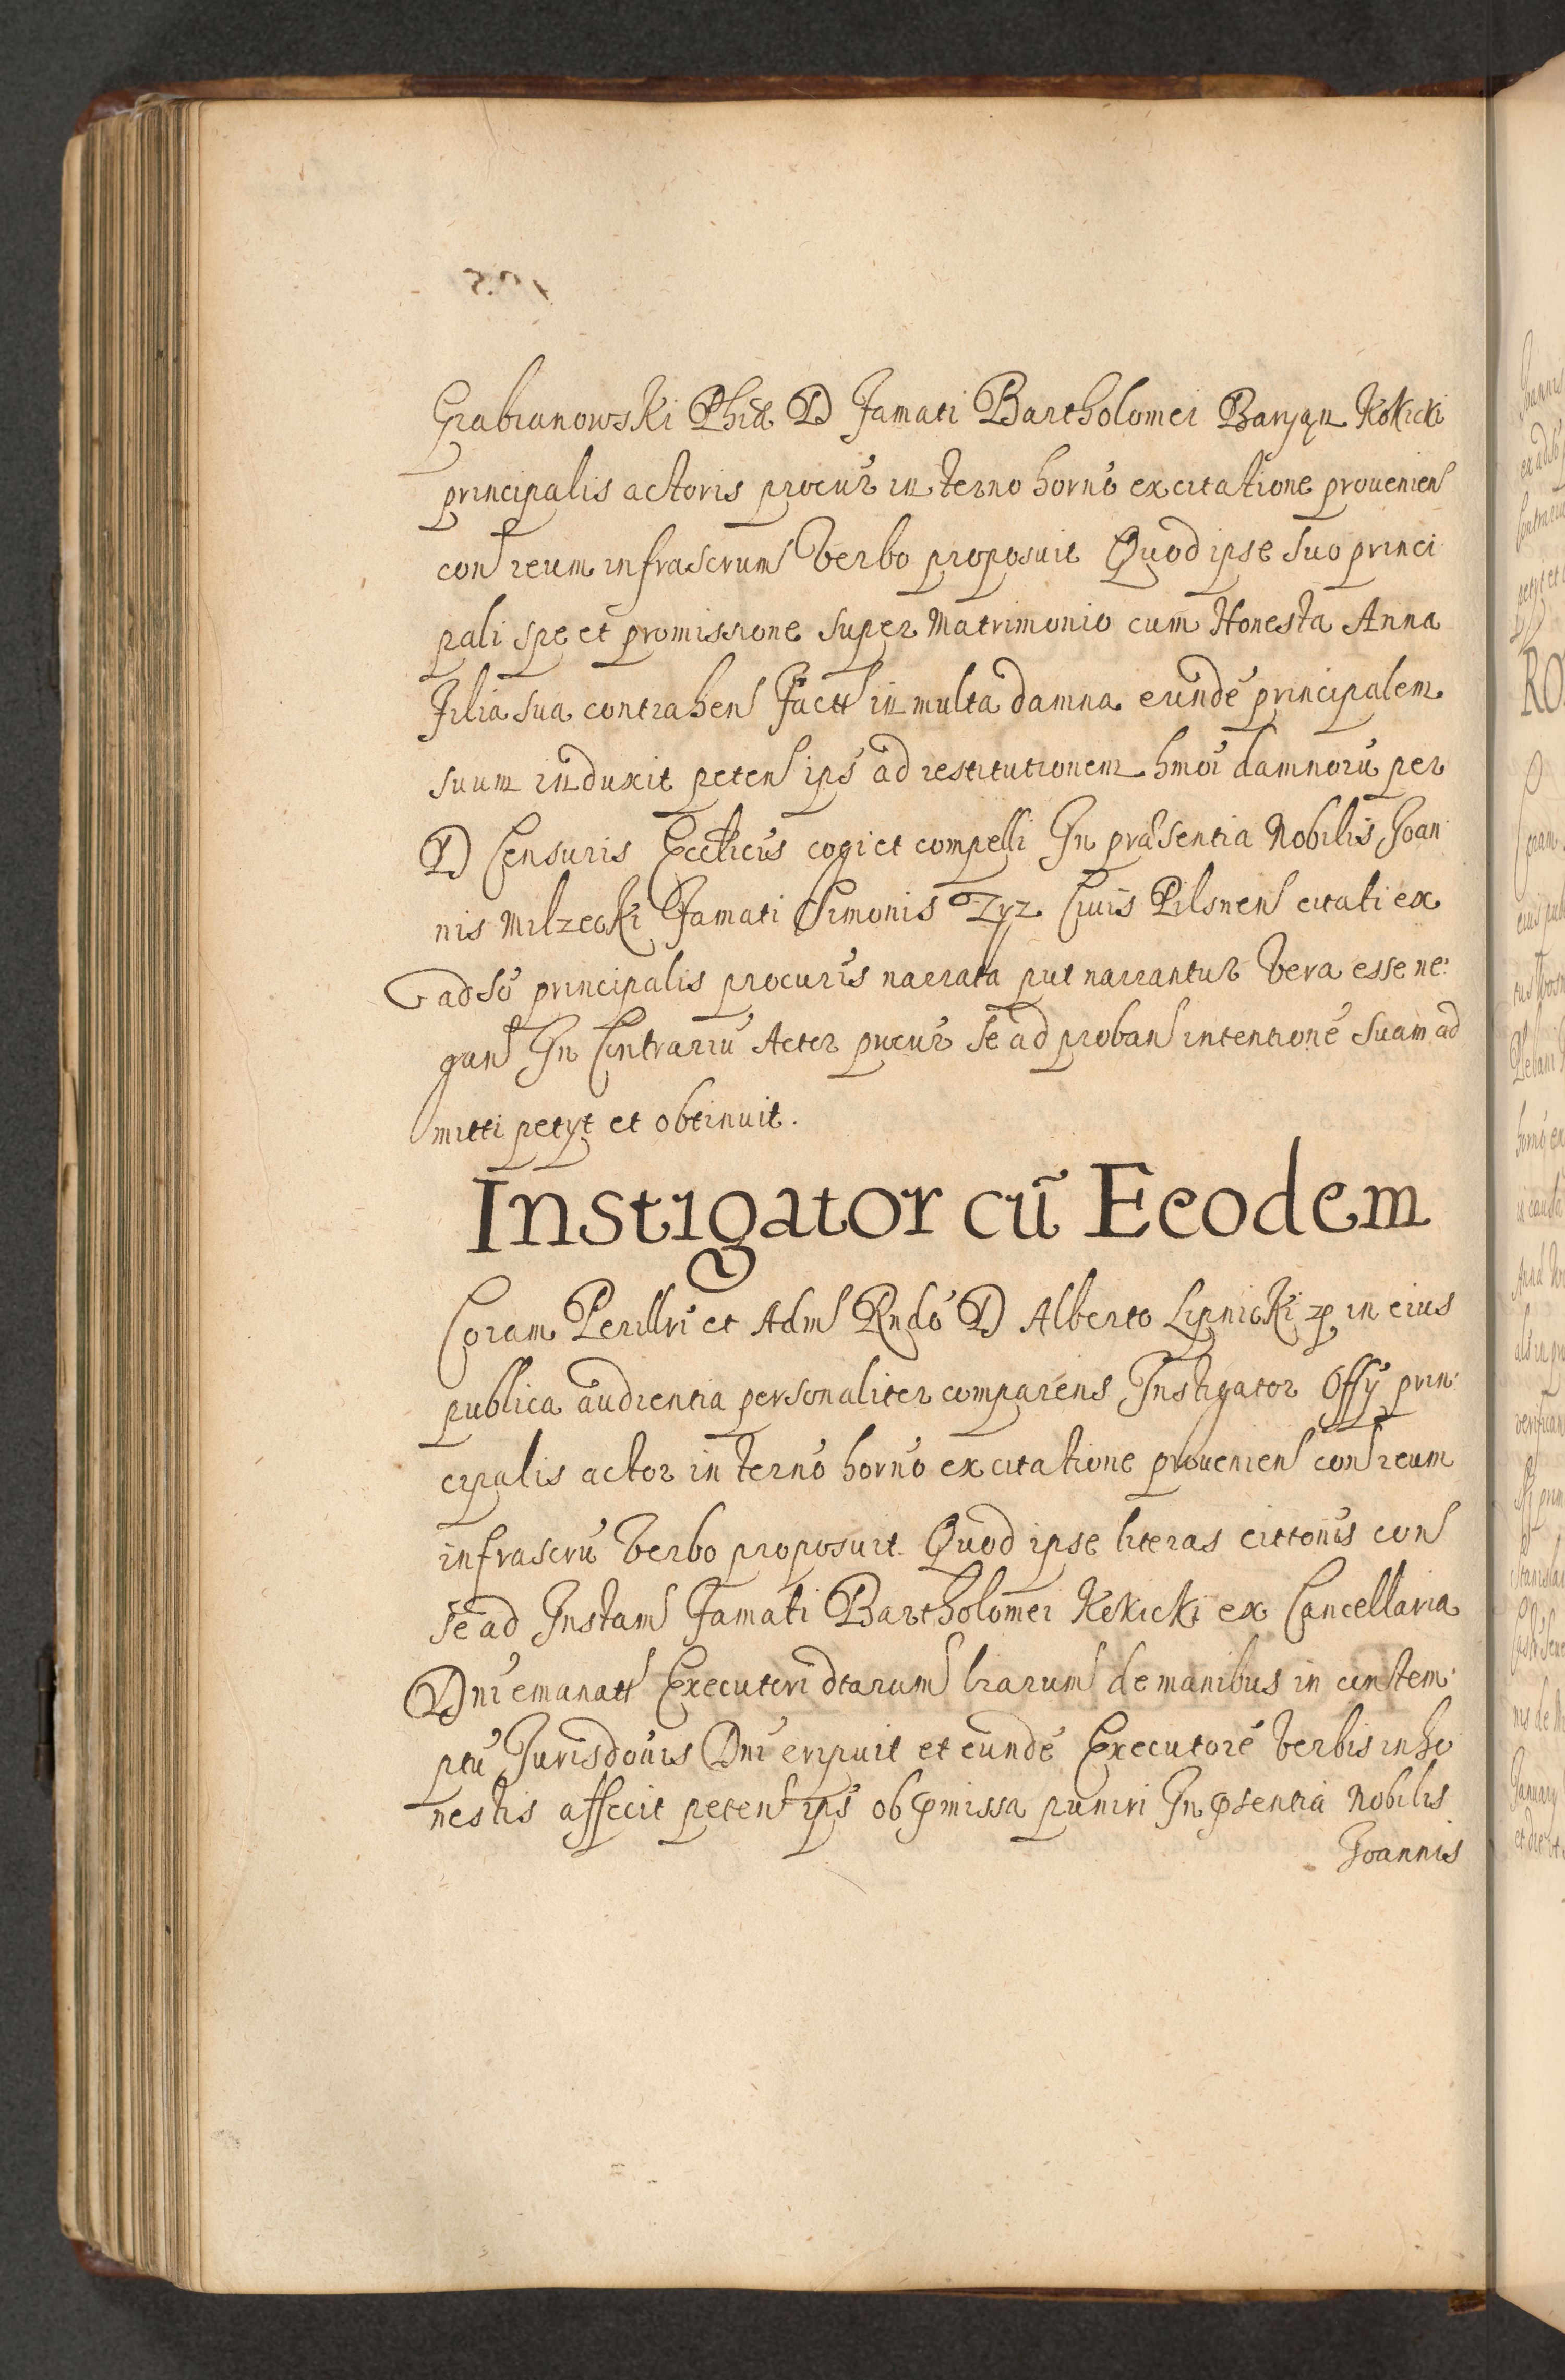 Grabianowski Phiæ D Famati Bartholomei Baryąn Kokicki
principalis actoris procur̃ in terno horno͂ ex citatione prouenien
con reum infrascrum Verbo proposuit Quod ipse suo princi
pali spe et promissione super Matrimonio cum Honesta Anna
Filia sua contrahen Fact in multa damna eundẽ principalem
suum induxit peten ips̃ ad restitutionem hmoĩ damnorũ per
D Censuris Ecclicis cogi et compelli In præsentia Nobilis Joan
nis Milzecki Famati Simonis Zyz Ciuis Pilsnen citati ex
adso͂ principalis procuris narrata put narrantur Vera esse ne:
gan In Contrariũ Actor procur̃ se ad proban intentionẽ suam ad
mitti petyt et obtinuit.
Instigator cũ Eeodem
Coram Perillri et Adm Rndo͂ D Alberto Lipnicki zp in eius
publica audientia personaliter comparens Instigator Offÿ prin:
cipalis actor in terno͂ horno͂ ex citatione prouenien con reum
infrascrũ Verbo proposuit Quod ipse literas cittonis con
se ad Instam Famati Bartholomei Kokicki ex Cancellaria
Dni emanatt Executori dtarum lrarum de manibus in contem:
ptũ Jurisdonis Dni eripuit et eundẽ Executorẽ Verbis inho
nestis affecit peten ips̃ ob pmissa puniri In psentia Nobilis
Joannis